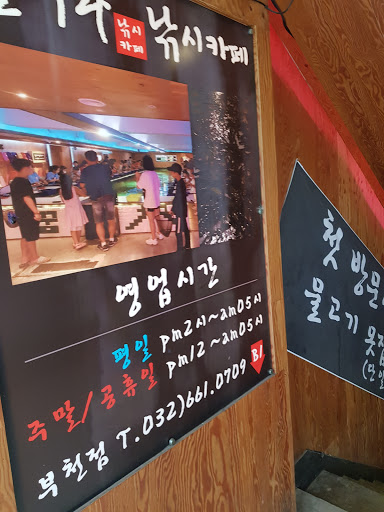 낚시카페
낚시카페
영업시간
평일 pm2시~am05시
주말/공휴일 pm12~am05시
부천점 T.032)661.0709 B1
첫 방문
물고기 못
(단일